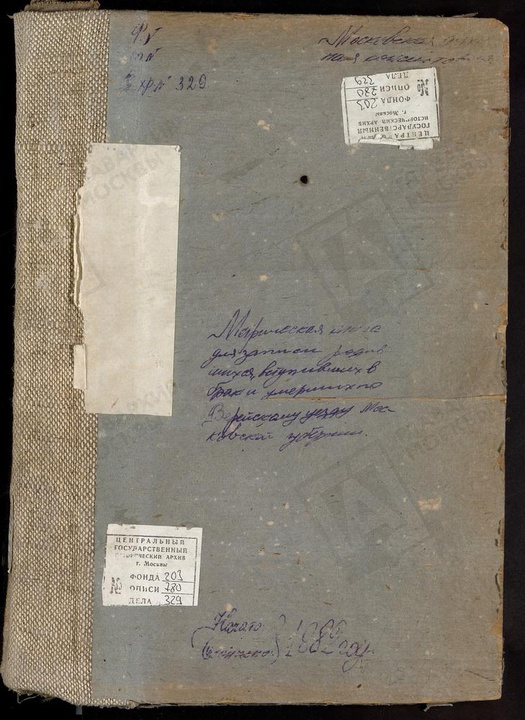 Московская духов
ная консистория
хр № 329
ЦЕНТРАЛЬНЫЙ
ГОСУДАРСТВЕННЫЙ
ИСТОРИЧЕСКИЙ АРХИВ
г. Москвы
ФОНДА 203
№ ОПИСИ 780
№ ДЕЛА 329
Метрическая книга
для записи родив
шихся, вступивших в
брак и умерших по
Верейскому уезду Мос
ковской губернии.
ЦЕНТРАЛЬНЫЙ
ГОСУДАРСТВЕННЫЙ
ИСТОРИЧЕСКИЙ АРХИВ
г. Москвы
ФОНДА 203
№ ОПИСИ 780
ДЕЛА 329
Начато
году